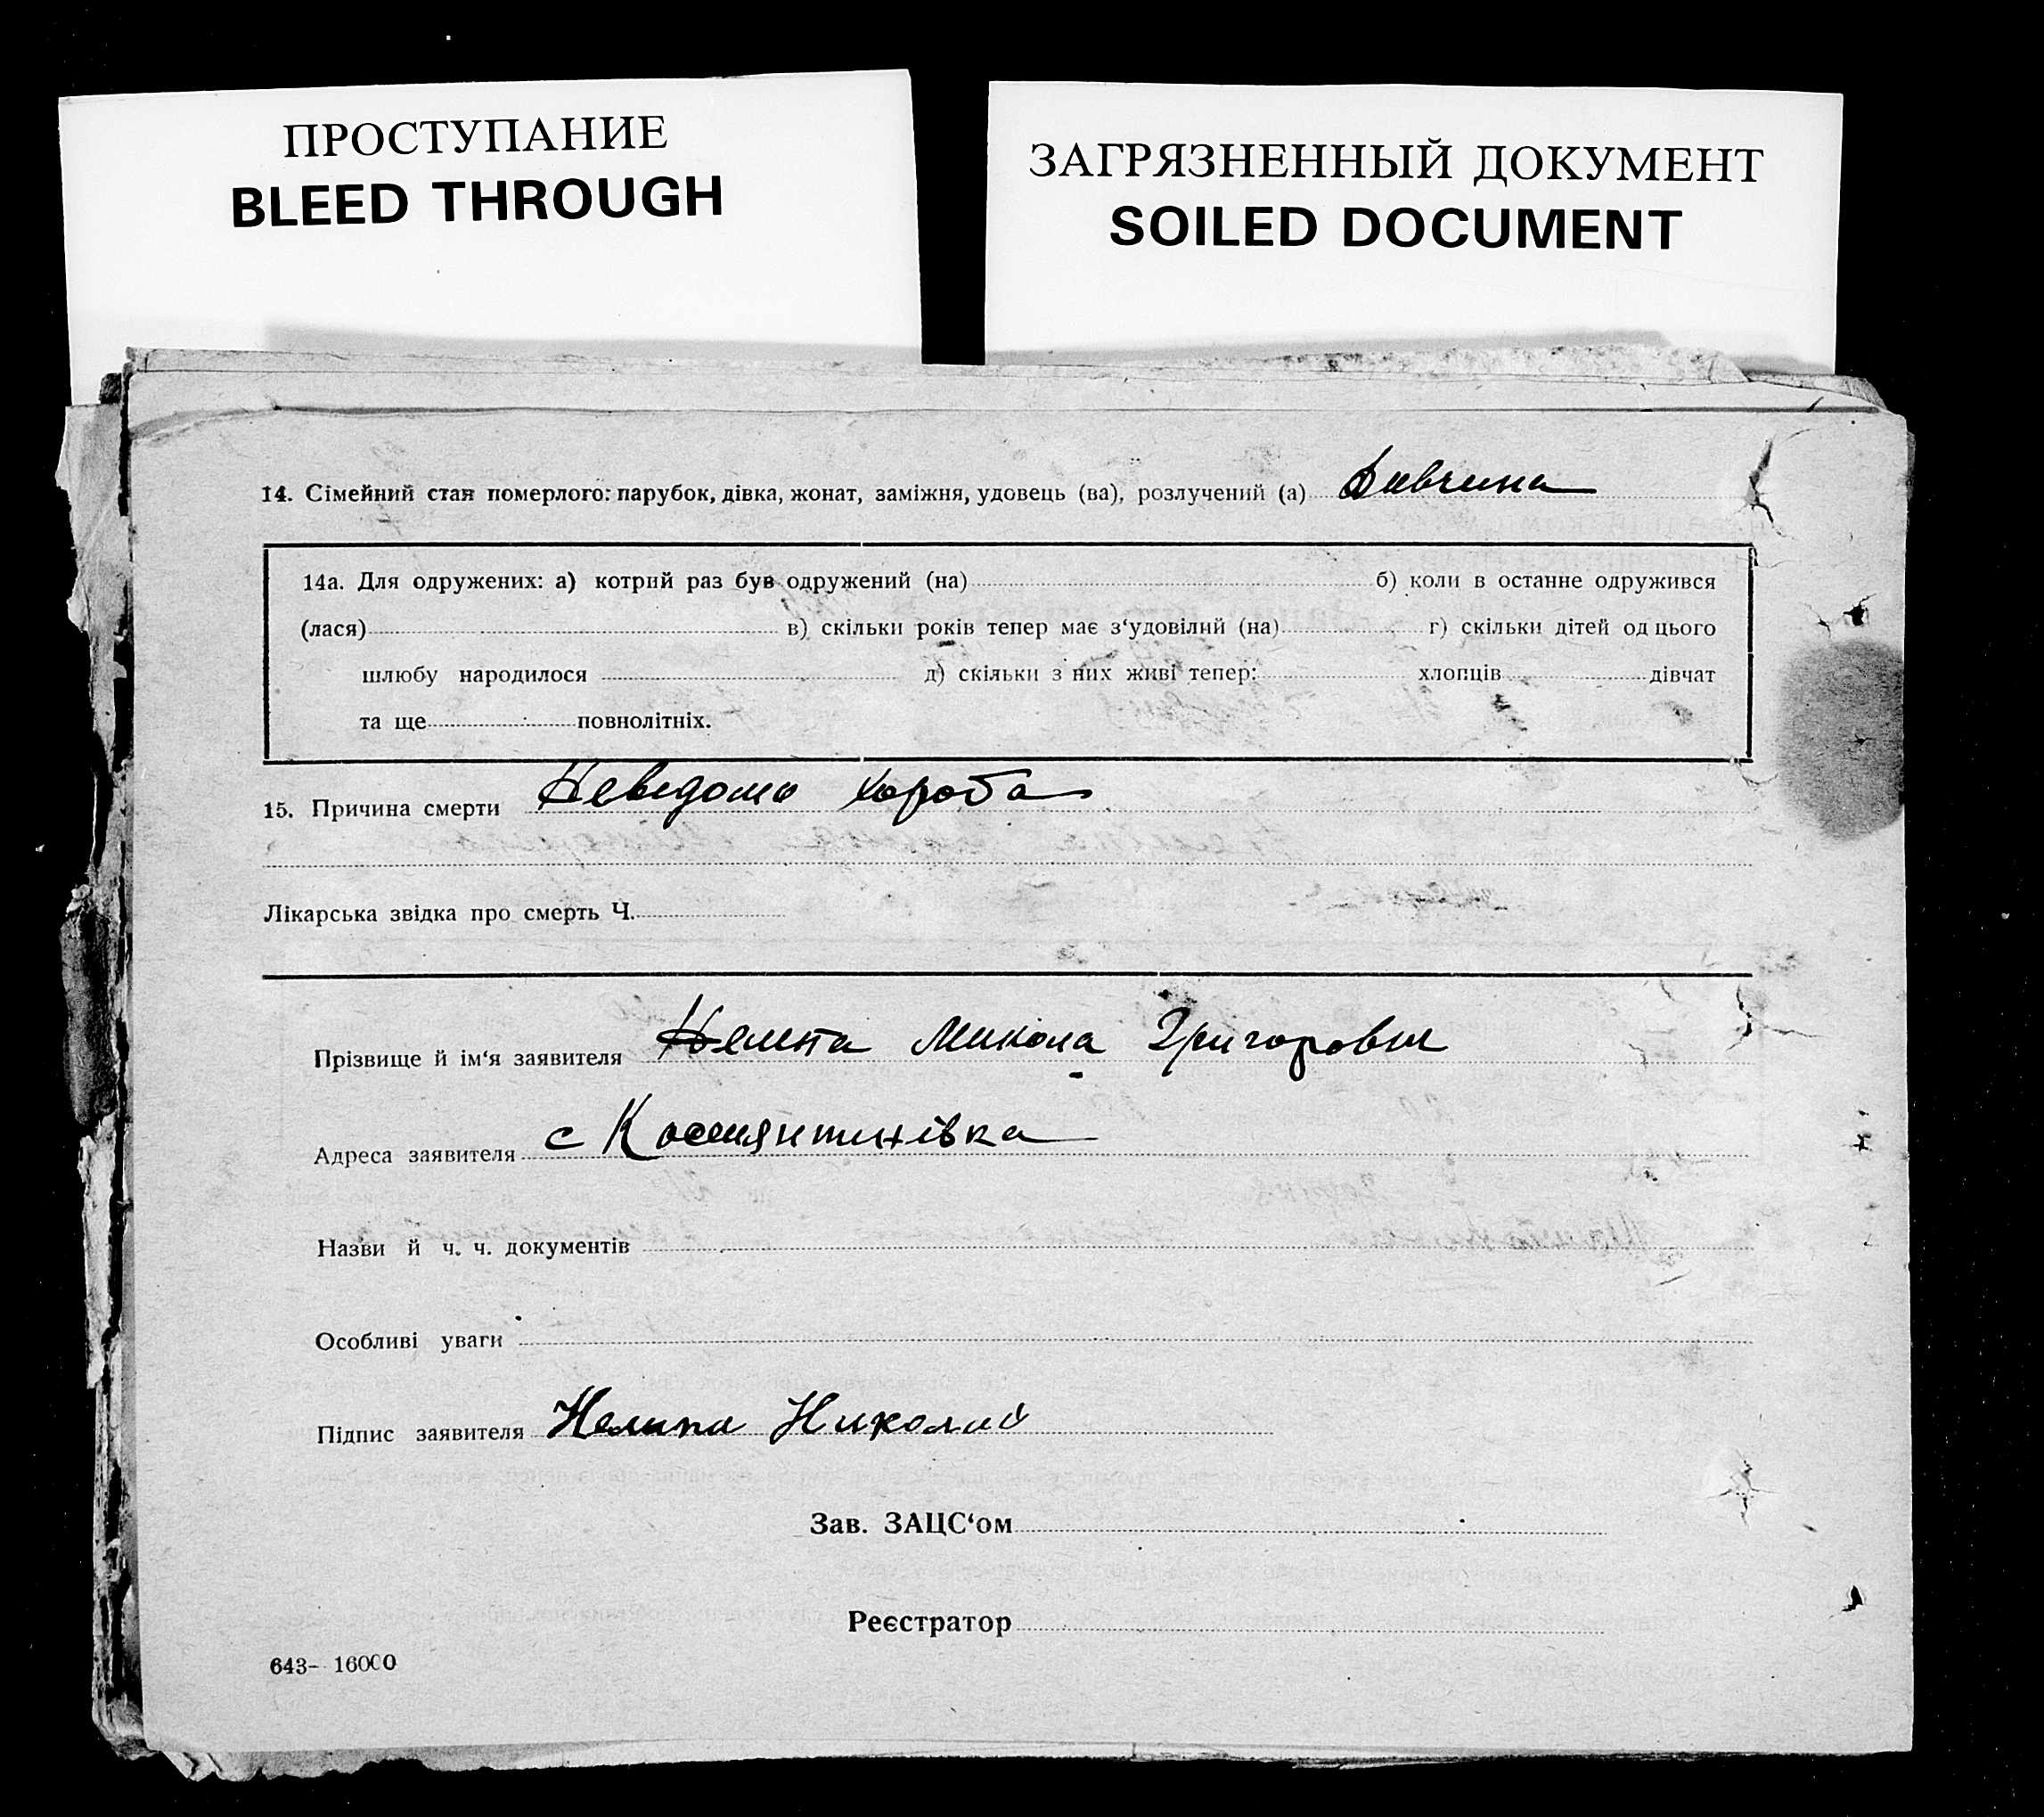 ПРОСТУПАНИЕ
BLEED THROUGH
ЗАГРЯЗНЕННЫЙ ДОКУМЕНТ
SOILED DOCUMENT
14. Сімейний стан померлого: парубок, дівка, жонат, заміжня, удовець (ва), розлучений (а) Дивчина
14а. Для одружених: а) котрий раз був одружений (на) б) коли в останне одружився
(лася) в) скільки років тепер має з‘удовілий (на) г) скільки дітей од цього
шлюбу народилося д) скільки з них живі тепер: хлопців дівчат
та ще повнолітніх.
15. Причина смерти Неведома хороба
Лікарська звідка про смерть Ч.
Прізвище й ім‘я заявителя Нелипа Микола Григорович
Адреса заявителя с Костянтинівка
Назви й ч. ч. документів
Особливі уваги
Підпис заявителя Нелипа Николай
Зав. ЗАЦС‘ом
Реєстратор
643- 16000